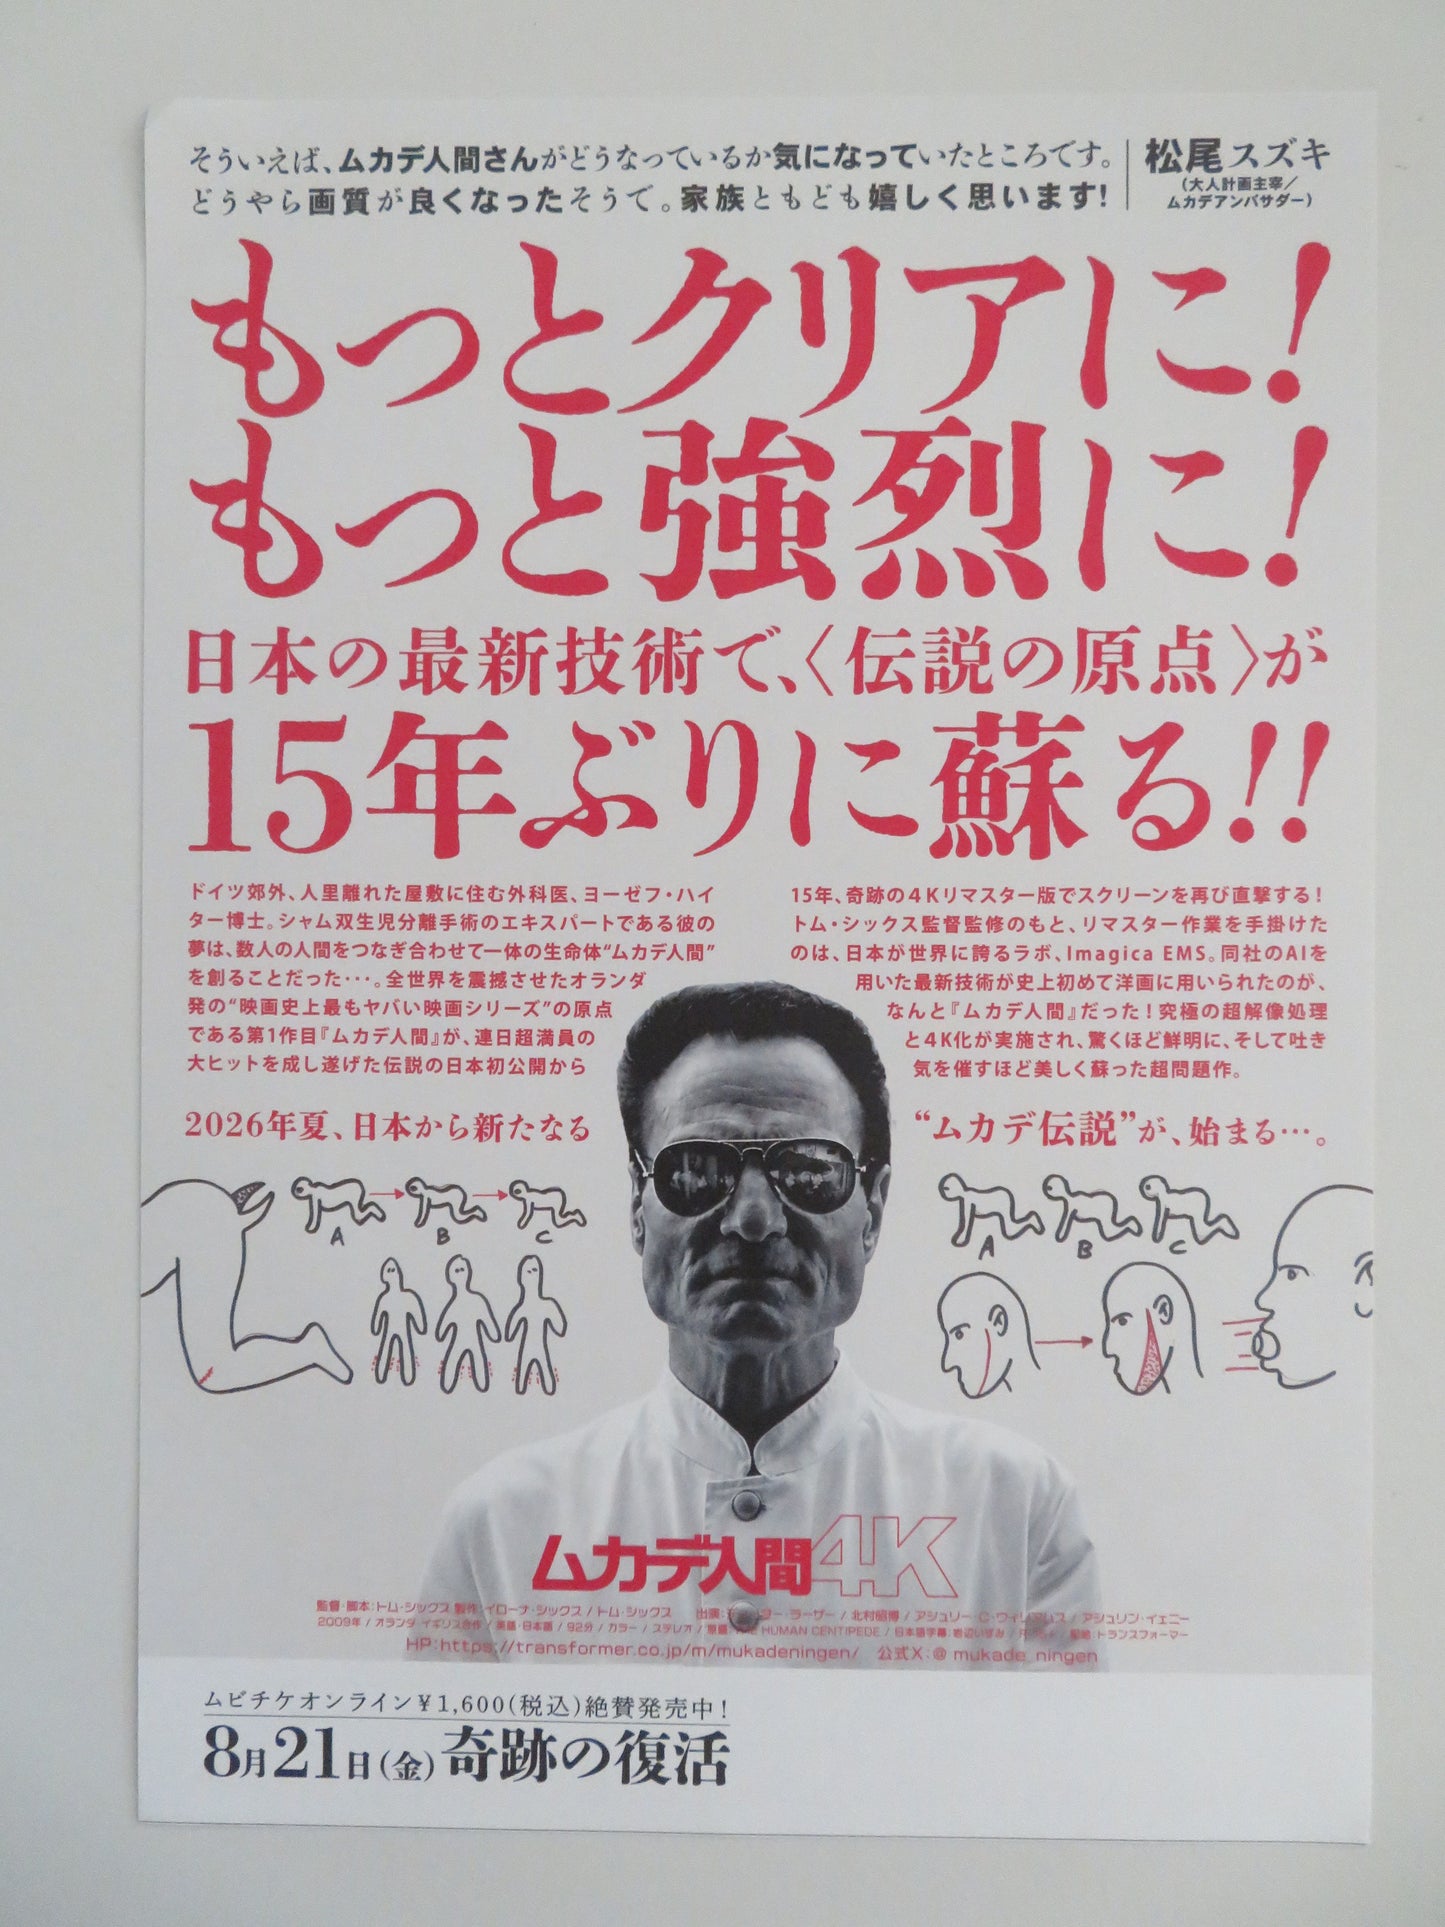 そういえば、ムカデ人間さんがどうなっているか気になっていたところです。
どうやら画質が良くなったそうで。家族ともども嬉しく思います!
松尾スズキ
(大人計画主宰/
ムカデアンバサダー)
もっとクリアに!
もっと強烈に!
日本の最新技術で、〈伝説の原点〉が
15年ぶりに蘇る!!
ドイツ郊外、人里離れた屋敷に住む外科医、ヨーゼフ・ハイ
ター博士。シャム双生児分離手術のエキスパートである彼の
夢は、数人の人間をつなぎ合わせて一体の生命体“ムカデ人間”
を創ることだった・・・。全世界を震撼させたオランダ
発の“映画史上最もヤバい映画シリーズ”の原点
である第1作目『ムカデ人間』が、連日超満員の
大ヒットを成し遂げた伝説の日本初公開から
15年、奇跡の4Kリマスター版でスクリーンを再び直撃する!
トム・シックス監督監修のもと、リマスター作業を手掛けた
のは、日本が世界に誇るラボ、Imagica EMS。同社のAIを
用いた最新技術が史上初めて洋画に用いられたのが、
なんと『ムカデ人間』だった!究極の超解像処理
と4K化が実施され、驚くほど鮮明に、そして吐き
気を催すほど美しく蘇った超問題作。
2026年夏、日本から新たなる
“ムカデ伝説”が、始まる…。
A B C
A B C
ムカデ人間4K
監督・脚本:トム・シックス 製作:イローナ・シックス / トム・シックス 出演:ディーター・ラーザー / 北村昭博 / アシュリー・C・ウィリアムス / アシュリン・イェニー
2009年 / オランダ・イギリス合作 / 英語・日本語 / 92分 / カラー / ステレオ / 原題:THE HUMAN CENTIPEDE / 日本語字幕:岩辺いずみ / 配給:トランスフォーマー
HP:https://transformer.co.jp/m/mukadeningen/ 公式X:@ mukade_ningen
ムビチケオンライン¥1,600(税込)絶賛発売中!
8月21日(金)奇跡の復活